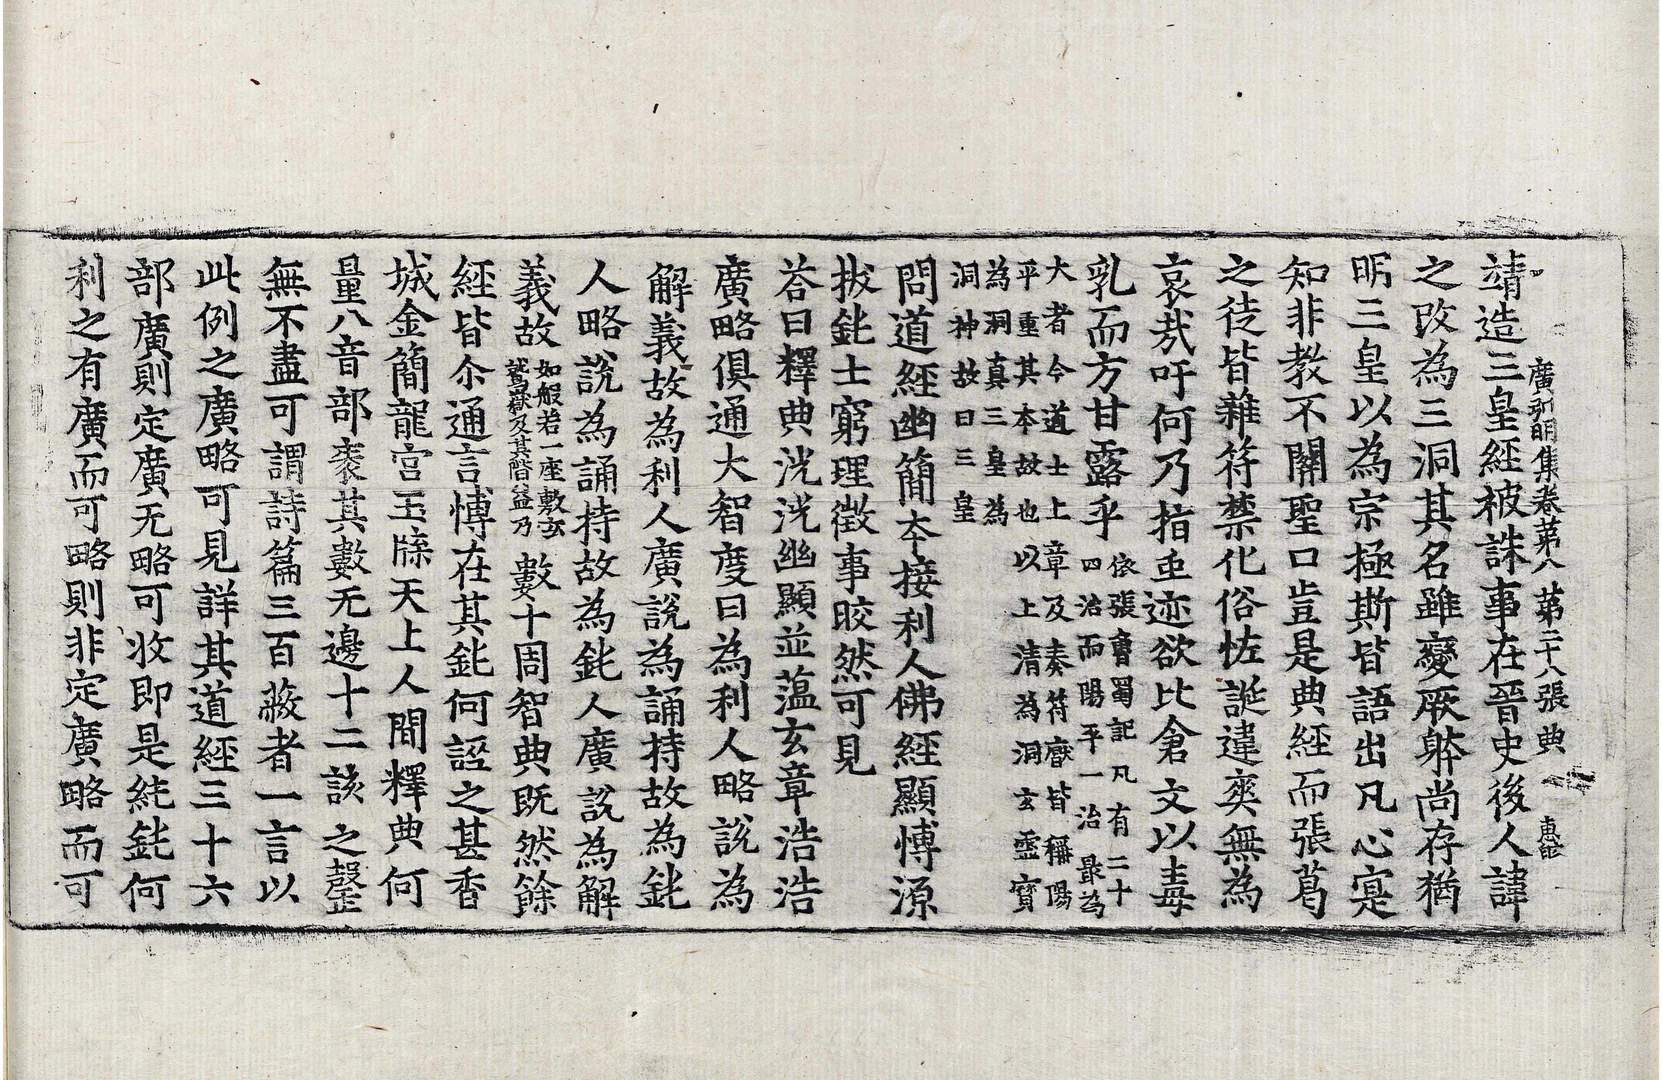 靖造三皇經被誅事在晉史後人諱
廣弘明集卷第八 第二十八張 典
之改為三洞其名雖變厥躰尚存猶
明三皇以為宗極斯皆語出凡心寔
知非教不關聖口豈是典經而張葛
之徒皆雜符禁化俗恠誕違爽無為
哀哉吁何乃指蚉迹欲比倉文以毒
乳而方甘露乎
依張魯蜀記凡有二十
四治而陽平一治最為
大者今道士上章及奏符厭皆稱陽
平重其本故也以上清為洞玄靈寶
為洞真三皇為
洞神故曰三皇
問道經幽簡本接利人佛經顯愽源
拔鈋士窮理徵事晈然可見
荅曰釋典洸洸幽顯並薀玄章浩浩
廣略俱通大智度曰為利人略說為
解義故為利人廣說為誦持故為鈋
人略說為誦持故為鈋人廣說為解
義故
如般若一座敷玄
鷲嶽及其階益乃
數十周智典既然餘
經皆尒通言愽在其鈋何誣之甚香
城金簡龍宮玉牒天上人間釋典何
量八音部袠其數无邊十二該之罄
無不盡可謂詩篇三百蔽者一言以
此例之廣略可見詳其道經三十六
部廣則定廣无略可收即是純鈋何
利之有廣而可略則非定廣略而可